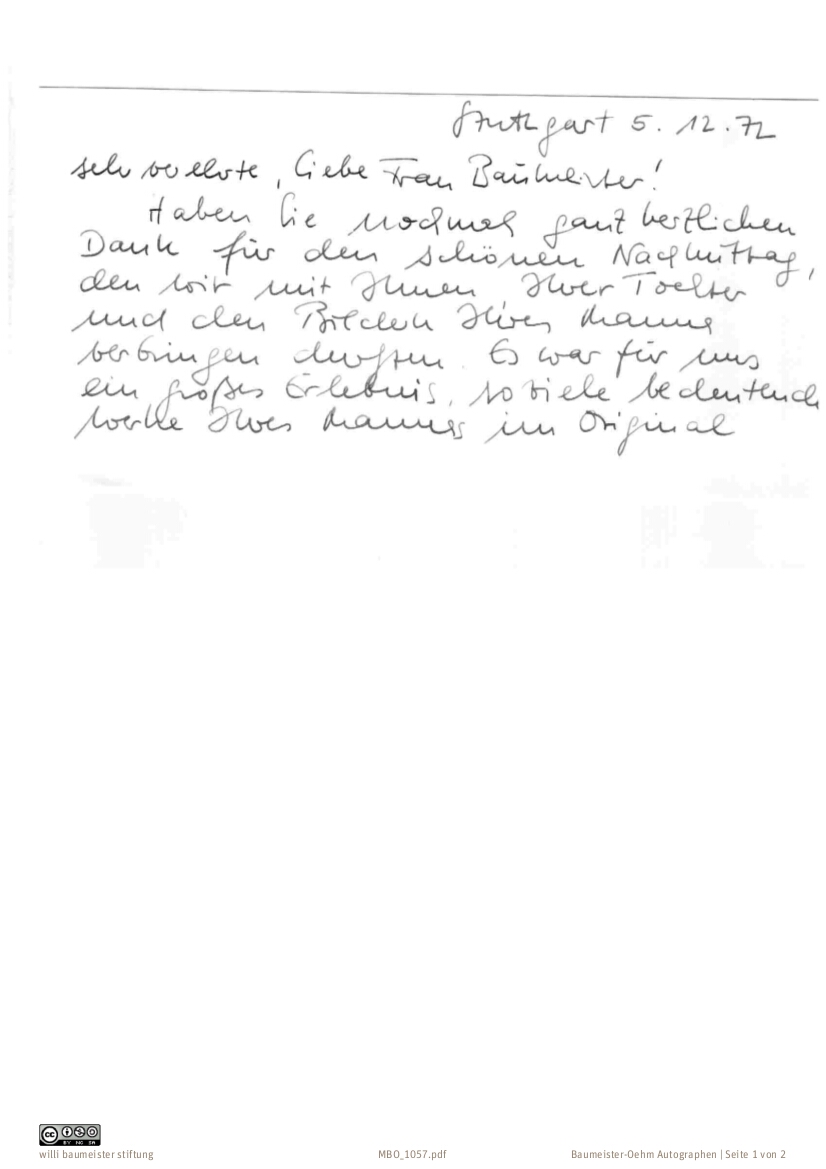 Stuttgart 5.12.72
sehr verehrte, liebe Frau Baumeister!
Haben Sie nochmals ganz herzlichen
Dank für den schönen Nachmittag,
den wir mit Ihnen Ihrer Tochter
und den Bildern Ihres Mannes
verbringen durften. Es war für uns
ein großes Erlebnis, so viele bedeutende
Werke Ihres Mannes im Original
CC BY NC SA
willi baumeister stiftung MBO_1057.pdf Baumeister-Oehm Autographen | Seite 1 von 2